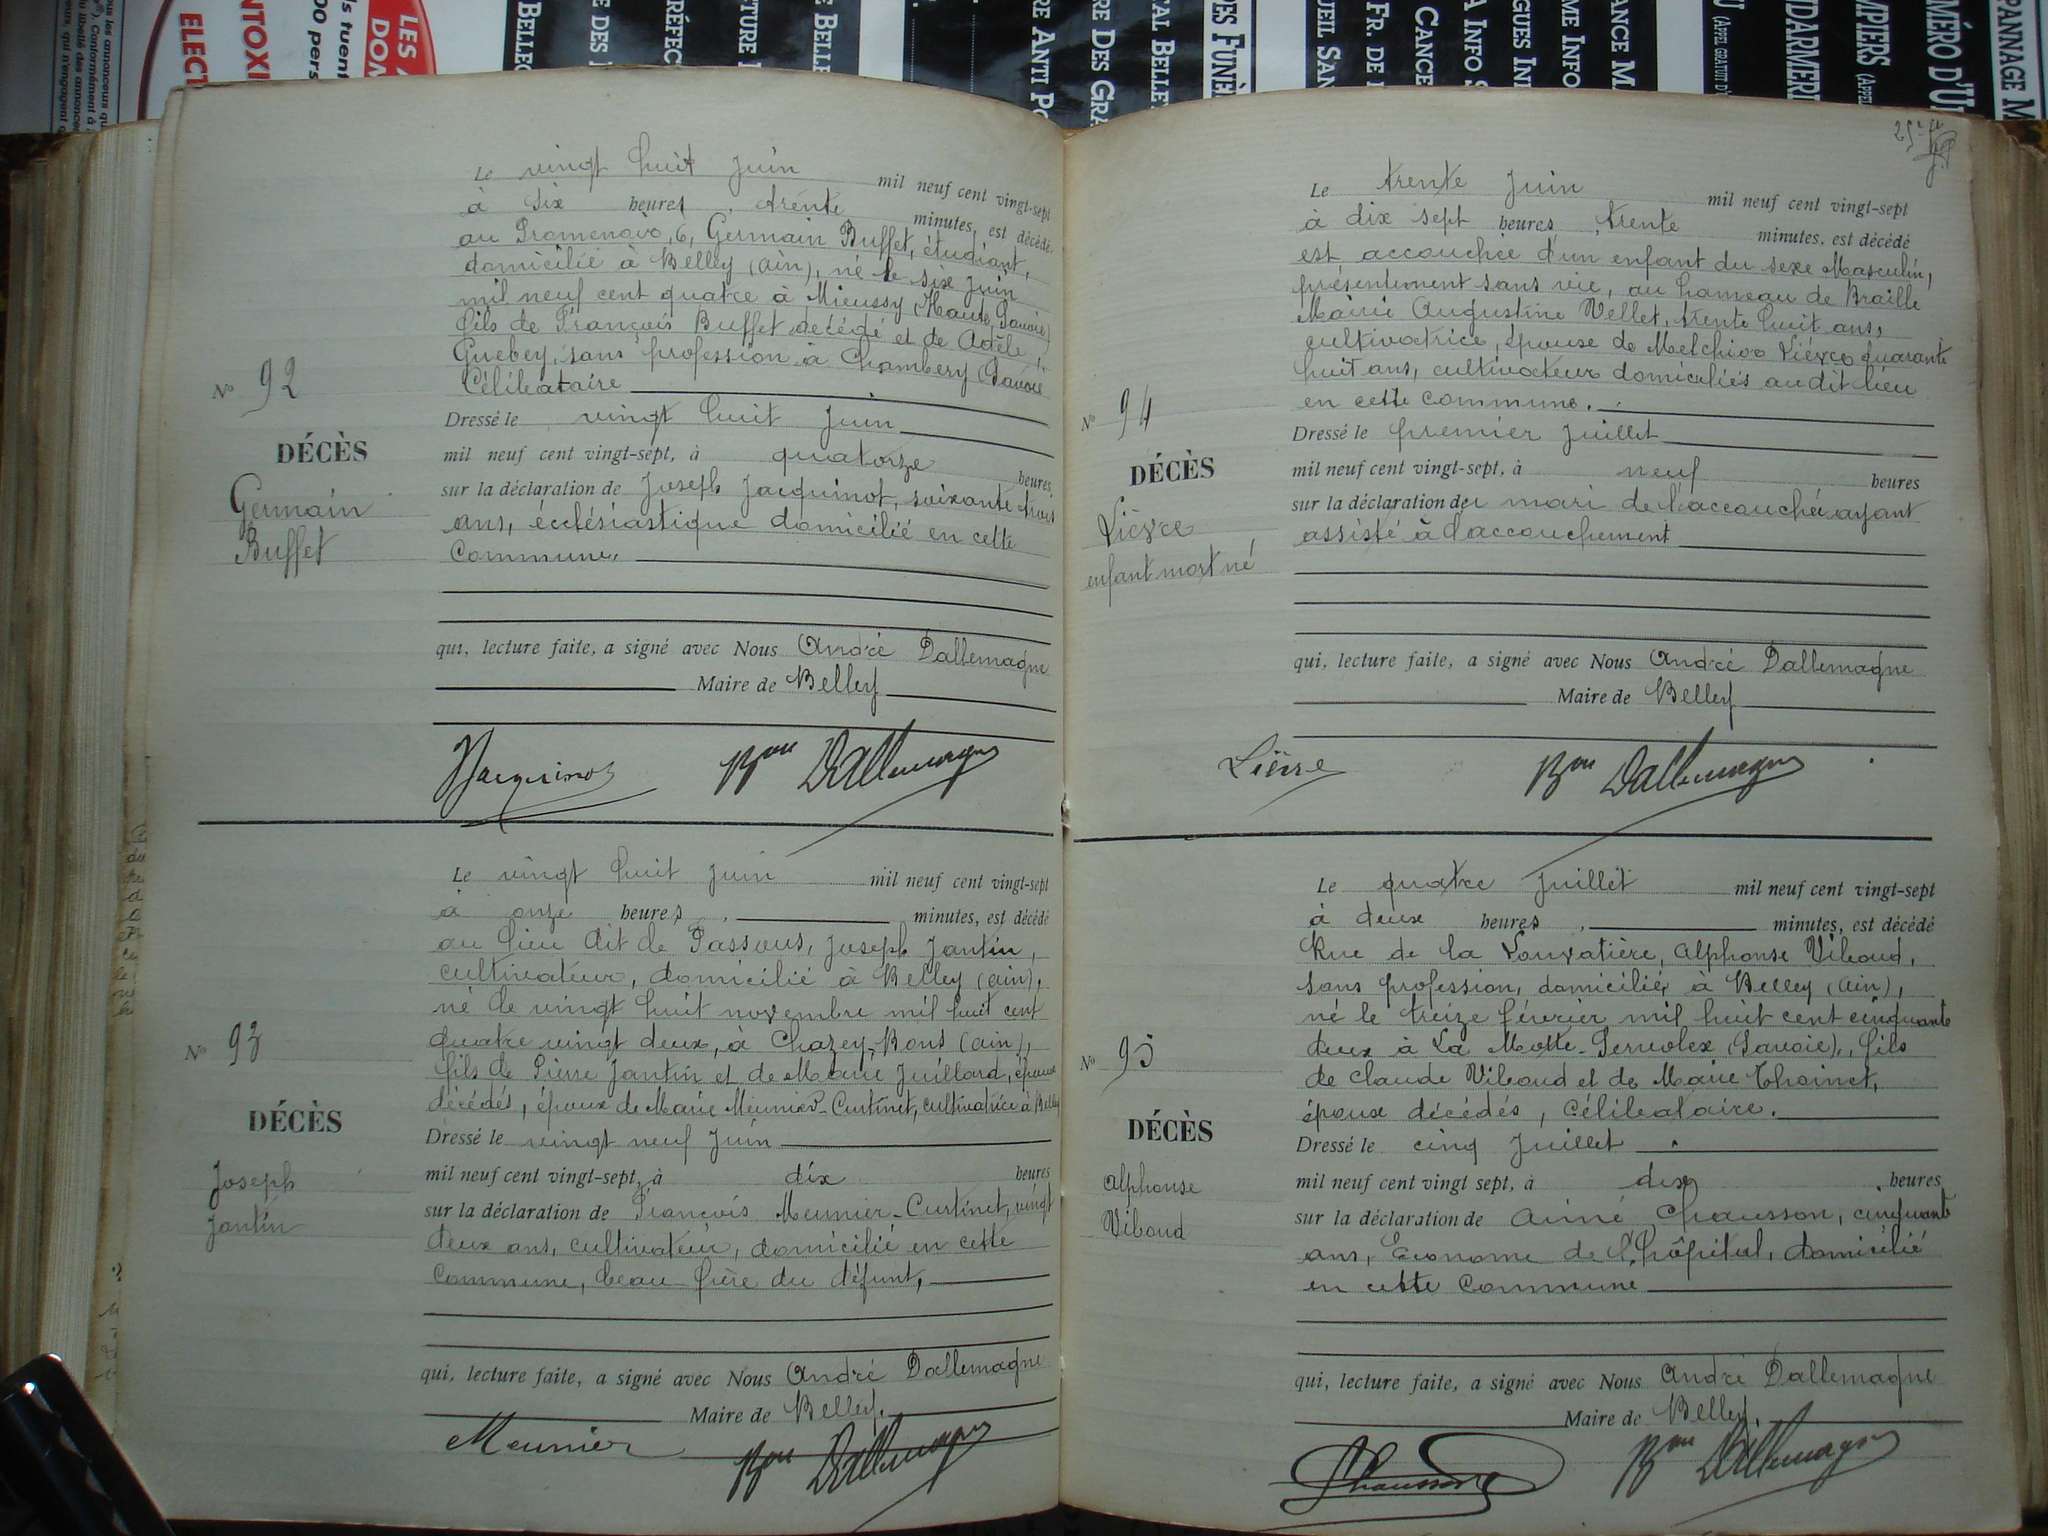 Le vingt huit juin mil neuf cent vingt-sept
à dix heures, trente minutes, est décédé
au Promenoir, 6, Germain Buffet, étudiant,
domicilié à Belley (Ain), né le six juin
mil neuf cent quatre à Mieussy (Haute Savoie)
fils de François Buffet décédé et de Adèle
Guebey, sans profession à Chambéry (Savoie
Célibataire
N° 92
DÉCÈS
Germain
Buffet
Dressé le vingt huit juin
mil neuf cent vingt-sept, à quatorze heures
sur la déclaration de Joseph Jacquinot, soixante trois
ans, écclésiastique domicilié en cette
Commune.
qui, lecture faite, a signé avec Nous André Dallemagne
Maire de Belley
Jacquinot Bon Dallemagne
Le vingt huit juin mil neuf cent vingt-sept
à onze heures, minutes, est décédé
au lieu dit de Passous, Joseph Jantin,
cultivateur, domicilié à Belley (Ain),
né le vingt huit novembre mil huit cent
quatre vingt deux, à Chazey-Bons (Ain),
fils de Pierre Jantin et de Marie Juillard, époux
décédés, époux de Marie Meunier-Curtinet, cultivatrice à Belley
N° 93
DÉCÈS
Joseph
Jantin
Dressé le vingt neuf juin
mil neuf cent vingt-sept, à dix heures
sur la déclaration de François Meunier-Curtinet, vingt
deux ans, cultivateur, domicilié en cette
Commune, beau-frère du défunt,
qui, lecture faite, a signé avec Nous André Dallemagne
Maire de Belley.
Meunier Bon Dallemagne
Le trente juin mil neuf cent vingt-sept
à dix sept heures trente minutes, est décédé
est accouchée d'un enfant du sexe Masculin,
présentement sans vie, au hameau de Braille
Marie Augustine Vellet, trente huit ans,
cultivatrice, épouse de Melchior Lièvre quarante
huit ans, cultivateur domiciliés audit lieu
en cette commune.
N° 94
DÉCÈS
Lièvre
enfant mort né
Dressé le premier juillet
mil neuf cent vingt-sept, à neuf heures
sur la déclaration du mari de l'accouchée ayant
assisté à l'accouchement
qui, lecture faite, a signé avec Nous André Dallemagne
Maire de Belley
Lièvre Bon Dallemagne
Le quatre juillet mil neuf cent vingt-sept
à deux heures, minutes, est décédé
Rue de la Louvatière, Alphonse Viboud,
sans profession, domicilié à Belley (Ain),
né le treize février mil huit cent cinquante
deux à La Motte-Servolex (Savoie), fils
de Claude Viboud et de Marie Thoinet,
époux décédés, Célibataire.
N° 95
DÉCÈS
Alphonse
Viboud
Dressé le cinq juillet
mil neuf cent vingt sept, à dix heures
sur la déclaration de Aimé Chausson, cinquante
ans, Econome de l'hôpital, domicilié
en cette Commune
qui, lecture faite, a signé avec Nous André Dallemagne
Maire de Belley.
Chausson Bon Dallemagne